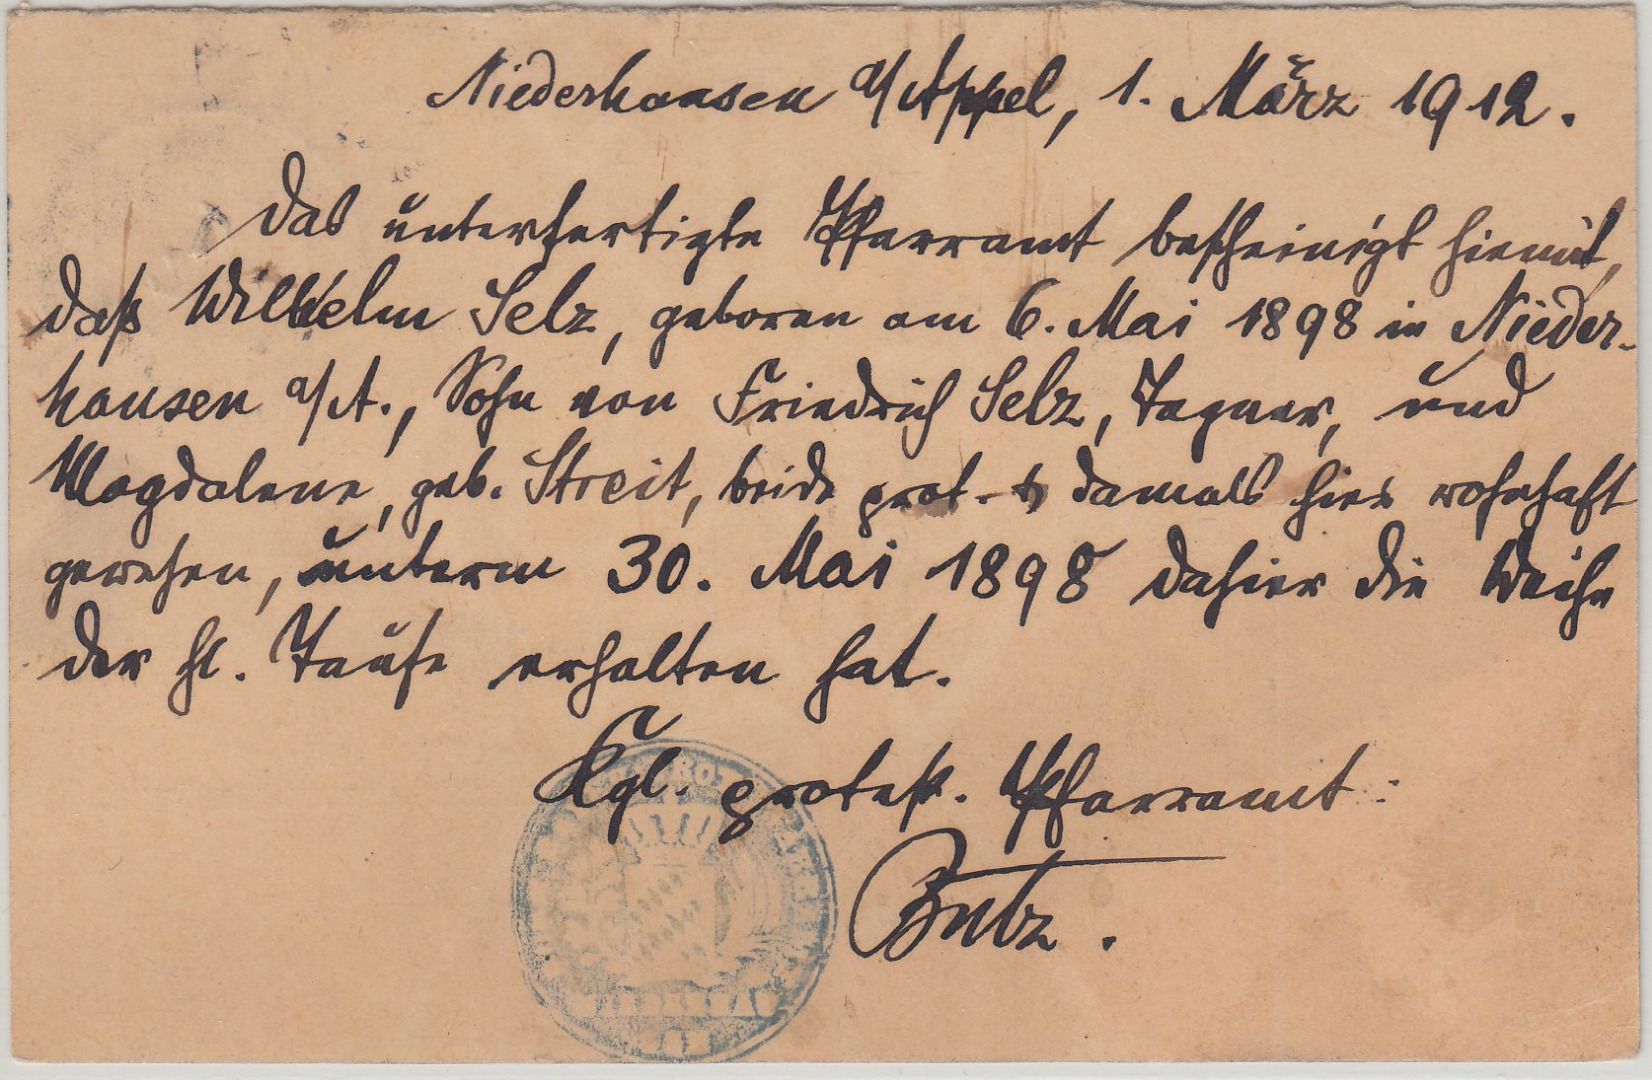 Niederhausen a/Appel, 1. März 1912.
Das unterfertigte Pfarramt bescheinigt hiemit,
daß Wilhelm Selz, geboren am 6. Mai 1898 in Nieder-
hausen a/A., Sohn von Friedrich Selz, Tagner, und
Magdalene, geb. Streit, beide prot. & damals hier wohnhaft
gewesen, unterm 30. Mai 1898 dahier die Weihe
der hl. Taufe erhalten hat.
Kgl. protest. Pfarramt: